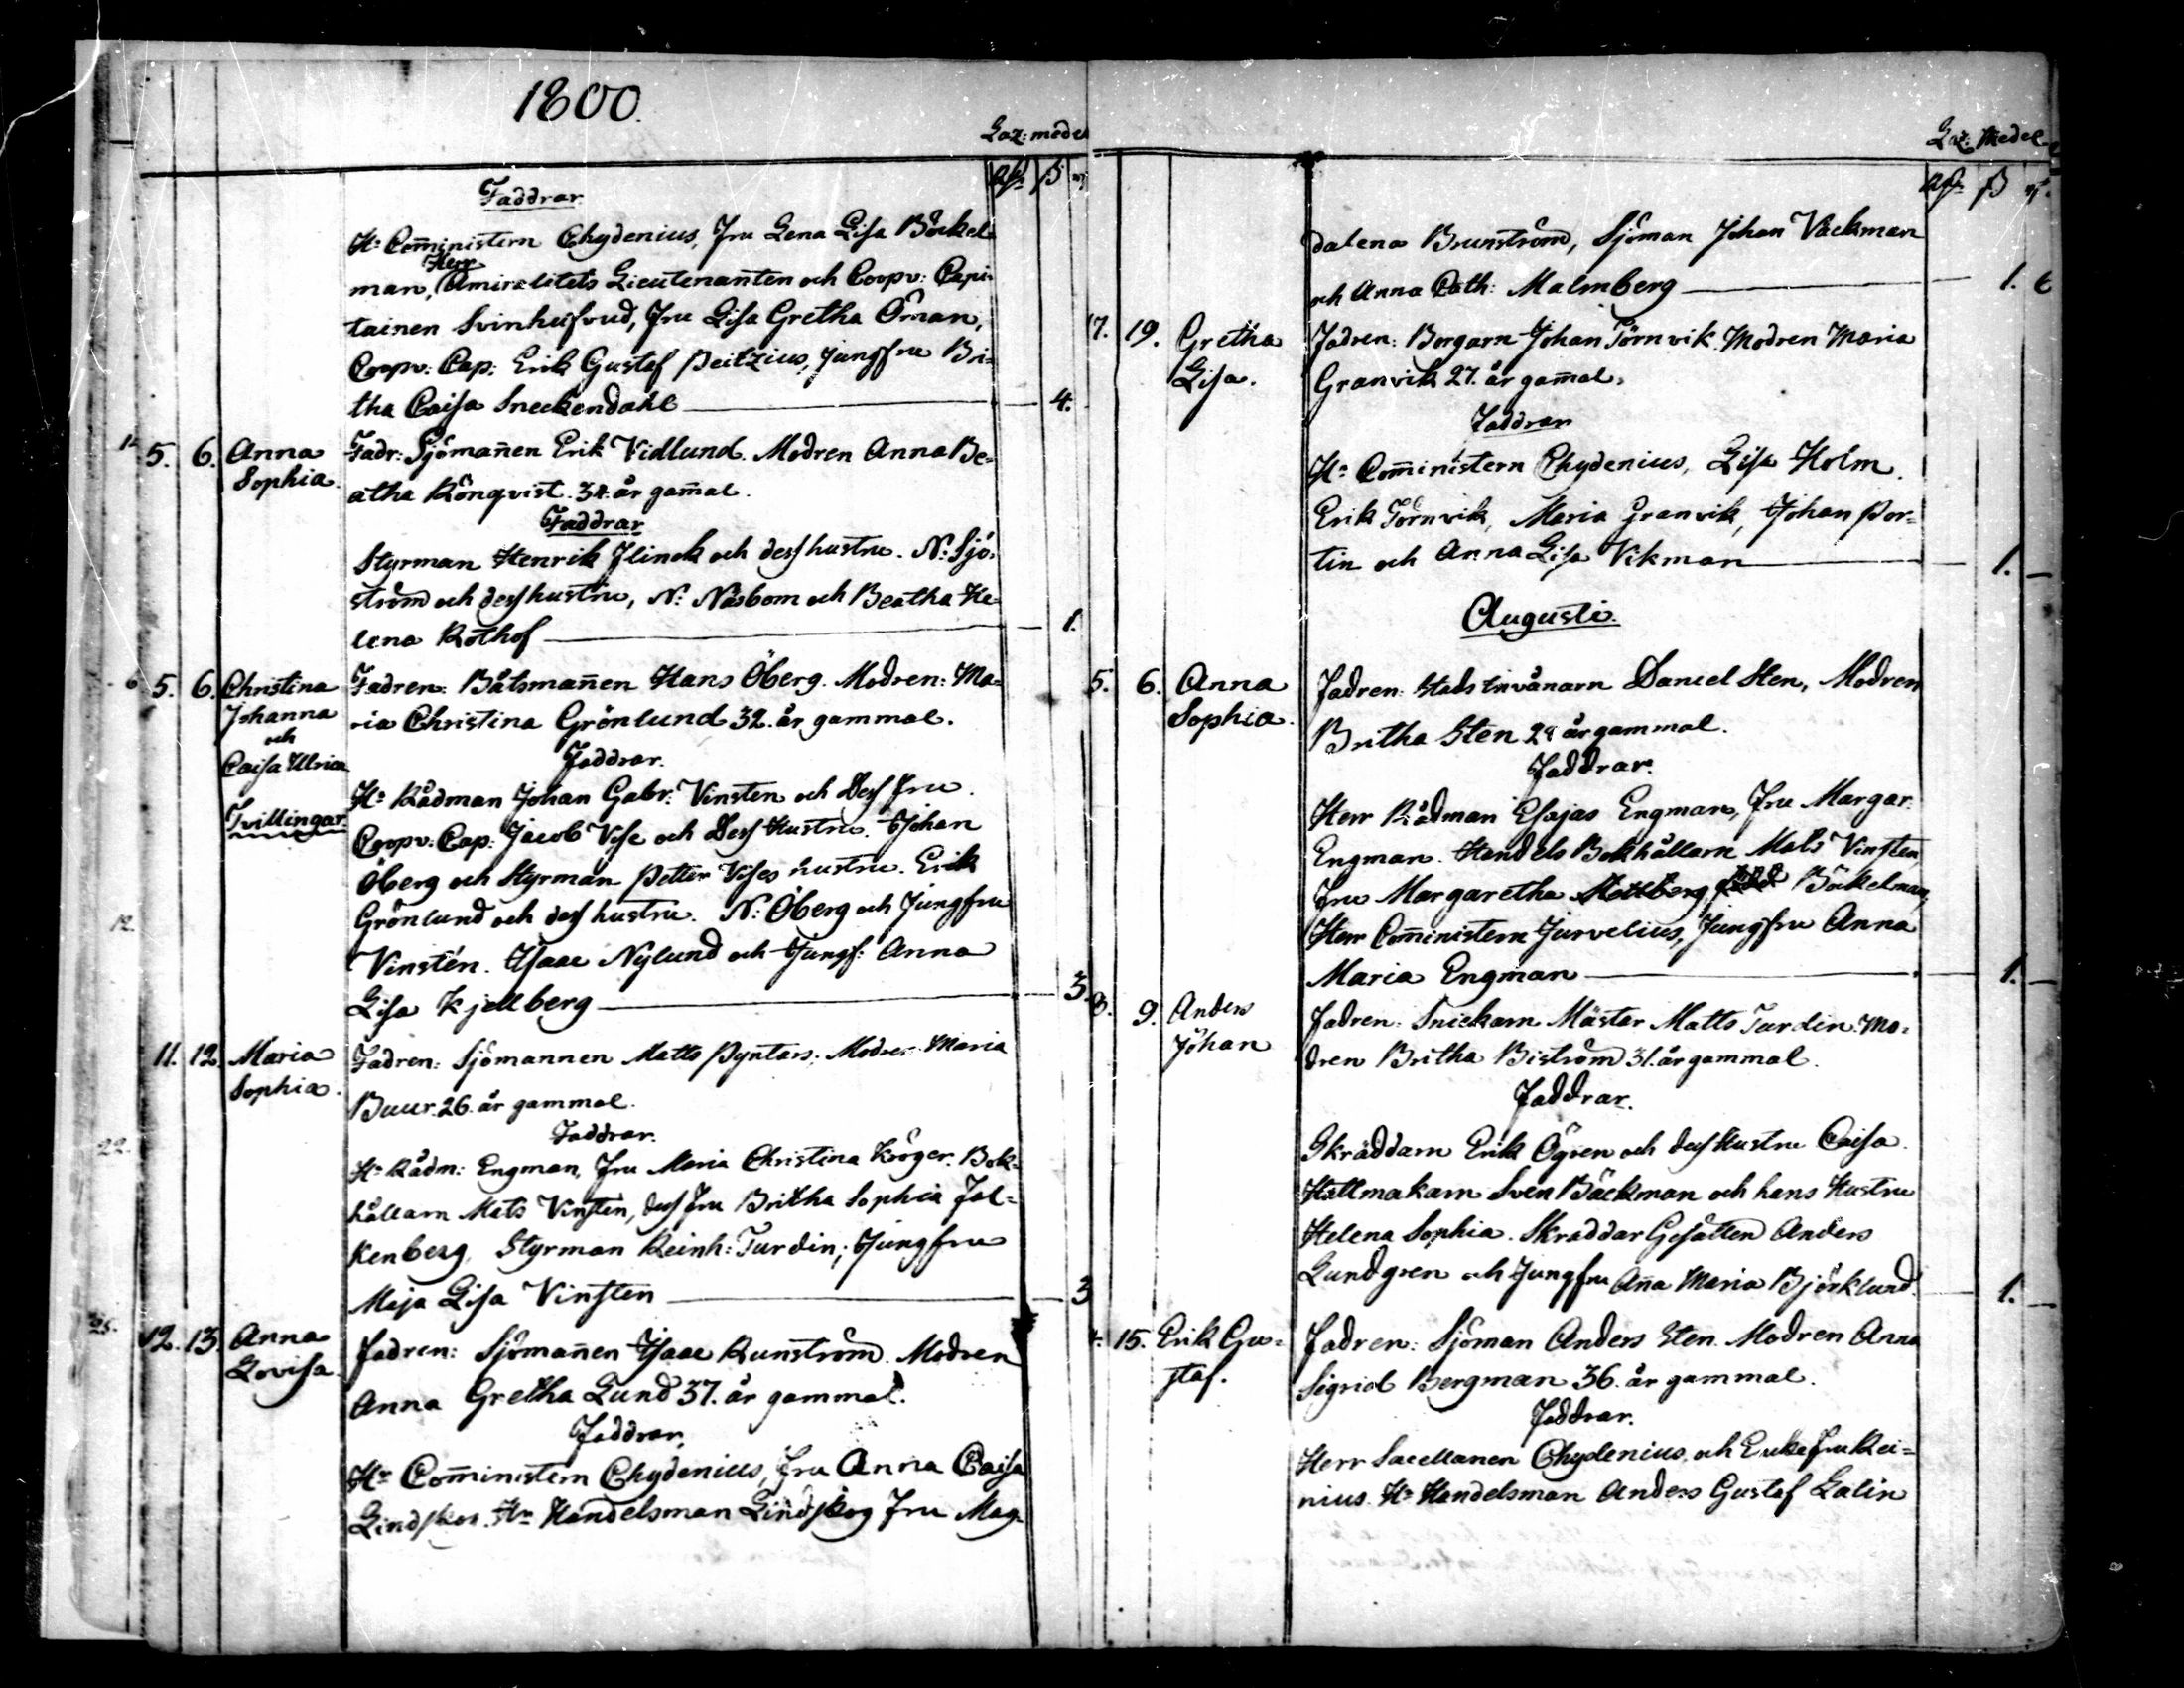 1800.
Laz: medel
Faddrar
Hr Comministern Chydenius, Fru Lena Lisa Böckel-
Herr
man, Amiralitets Lieutenanten och Coopv: Capi-
tainen Svinhufvud, Fru Lisa Gretha Öman,
Coopv: Cap: Erik Gustaf Peitzius, Jungfru Bri-
tha Caisa Sneckendahl — 4.
5. 6. Anna Sophia. Fadr: Sjömannen Erik Vidlund. Modren Anna Be-
atha Rönqvist. 34. år gammal.
Faddrar
Styrman Henrik Flinck och dess hustru. N: Sjö-
ström och dess hustru, N: Näsbom och Beatha He-
lena Rothof — 1.
5. 6. Christina Johanna och Caisa Ulrica Tvillingar. Fadren: Båtsmannen Hans Öberg. Modren: Ma-
ria Christina Grönlund 32. år gammal.
Faddrar.
Hr Rådman Johan Gabr: Vinsten och Dess Fru.
Coopv: Cap: Jacob Vise och Dess Hustru. Johan
Öberg och Styrman Petter Vises hustru. Erik
Grönlund och dess hustru. N: Öberg och Jungfru
Vinstén. Isaac Nylund och Jungf: Anna
Lisa Kjellberg — 3.
11. 12. Maria Sophia. Fadren: Sjömannen Matts Pyntars. Modren Maria
Buur. 26. år gammal.
Faddrar.
Hr Rådm: Engman, Fru Maria Christina Kröger. Bok-
hållarn Mats Vinsten, dess fru Britha Sophia Fal-
kenberg, Styrman Reinh: Turdin, Jungfru
Maja Lisa Vinsten — 3
12. 13. Anna Lovisa. Fadren: Sjömannen Isaac Runström. Modren
Anna Gretha Lund 37. år gammal.
Faddrar,
Hr Comministern Chydenius, Fru Anna Caisa
Lindskog. Hr Handelsman Lindskog Fru Mag-
Laz: Medel
dalena Brunström, Sjöman Johan Väckman
och Anna Cath: Malmberg — 1. 6
17. 19. Gretha Lisa. Fadren: Borgarn Johan Törnvik. Modren Maria
Granvik 27. år gammal.
Faddrar
Hr Comministern Chydenius, Lisa Holm.
Erik Törnvik, Maria Granvik, Johan Por-
tin och Anna Lisa Vikman — 1. —
Augusti.
5. 6. Anna Sophia. Fadren: Stads Invånarn Daniel Sten, Modren
Britha Sten 28 år gammal.
Faddrar.
Herr Rådman Esajas Engman, Fru Margar:
Engman. Handels Bokhållarn Mats Vinsten
Fru Margaretha Böckelman,
Herr Comministern Jurvelius, Jungfru Anna
Maria Engman — 1. —
8. 9. Anders Johan Fadren: Snickarn Mästar Matts Turdin. Mo-
dren Britha Biström 31. år gammal.
Faddrar.
Skräddarn Erik Ögren och dess Hustru Caisa.
Hattmakarn Sven Bäckman och hans Hustru
Helena Sophia. Skräddar Gesällen Anders
Lundgren och Jungfru Anna Maria Björklund. — 1. —
15. Erik Gu-
staf. Fadren: Sjöman Anders Sten. Modren Anna
Sigrid Bergman 36. år gammal.
Faddrar.
Herr Sacellanen Chydenius, och Enke fru Rei-
nius. Hr Handelsman Anders Gustaf Lalin